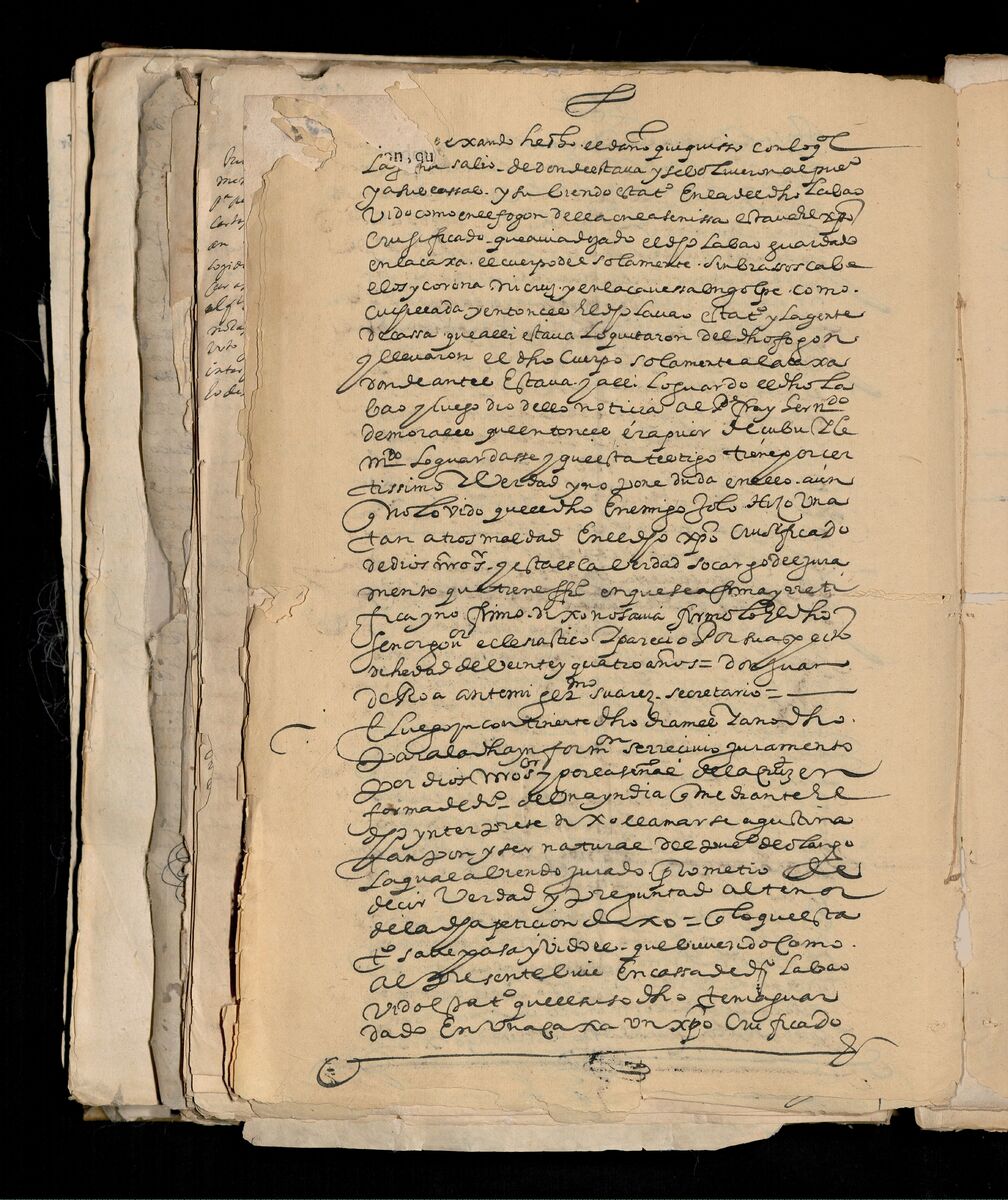 dexando hecho el daño que quisso con lo ql
salio de donde estava y se bolvieron al pueo
y a su cassa y subiendo este to en la del dho labao
vido como en el fogon della cnea senissa estava el xpo
crusificado que avia dejado el dho labao guardado
en la caxa el cuerpo del solamente sin brassos cabe
llos y corona ni cruz y en la cavessa un golpe como
y entonces el dho lavao este to y la gente
de cassa que alli estava lo quitaron del dho fogon
y llevaron el dho cuerpo solamente a la caxa
donde antes estava y alli lo guardo el dho la
bao y luego dio dello noticia al Pe fray herndo
de morales que entonces era prior de cubu y le
mdo lo guardasse y que esta testigo tiene por cer
tissimo y verdad y no pone duda en ello aun
q no lo vido que el dho enemigo solo hizo una
tan atros maldad en el dho xpo crusificado
de dios nro sr y esta es la verdad so cargo del jura
mento que tiene fho en que se afirma y reti
fica y no firmo dixo no savia firmolo el dho
señor gor eclesiastico y parecio por su aspecto
di hedad de veinte y quatro años = don juan
de Roa ante mi germo suarez secretario =
E luego yn continente dho dia mes y año dho
para la dha ynformon se rrecivio juramento
por dios nro sr y por la señal de la cruz en
forma de dro de una yndia q mediante el
dho ynterprese dixo llamarse agustina
panpon y ser natural del pueo de olango
la qual abiendo jurado prometio de
decir verdad y preguntad al tenor
de la dha peticion dixo = q lo que esta
to save passa y vido es que biviendo como
al presente bive en cassa de dho labao
vido esta to que el suso dho tenia guar
dado en una caxa un xpo crusificado